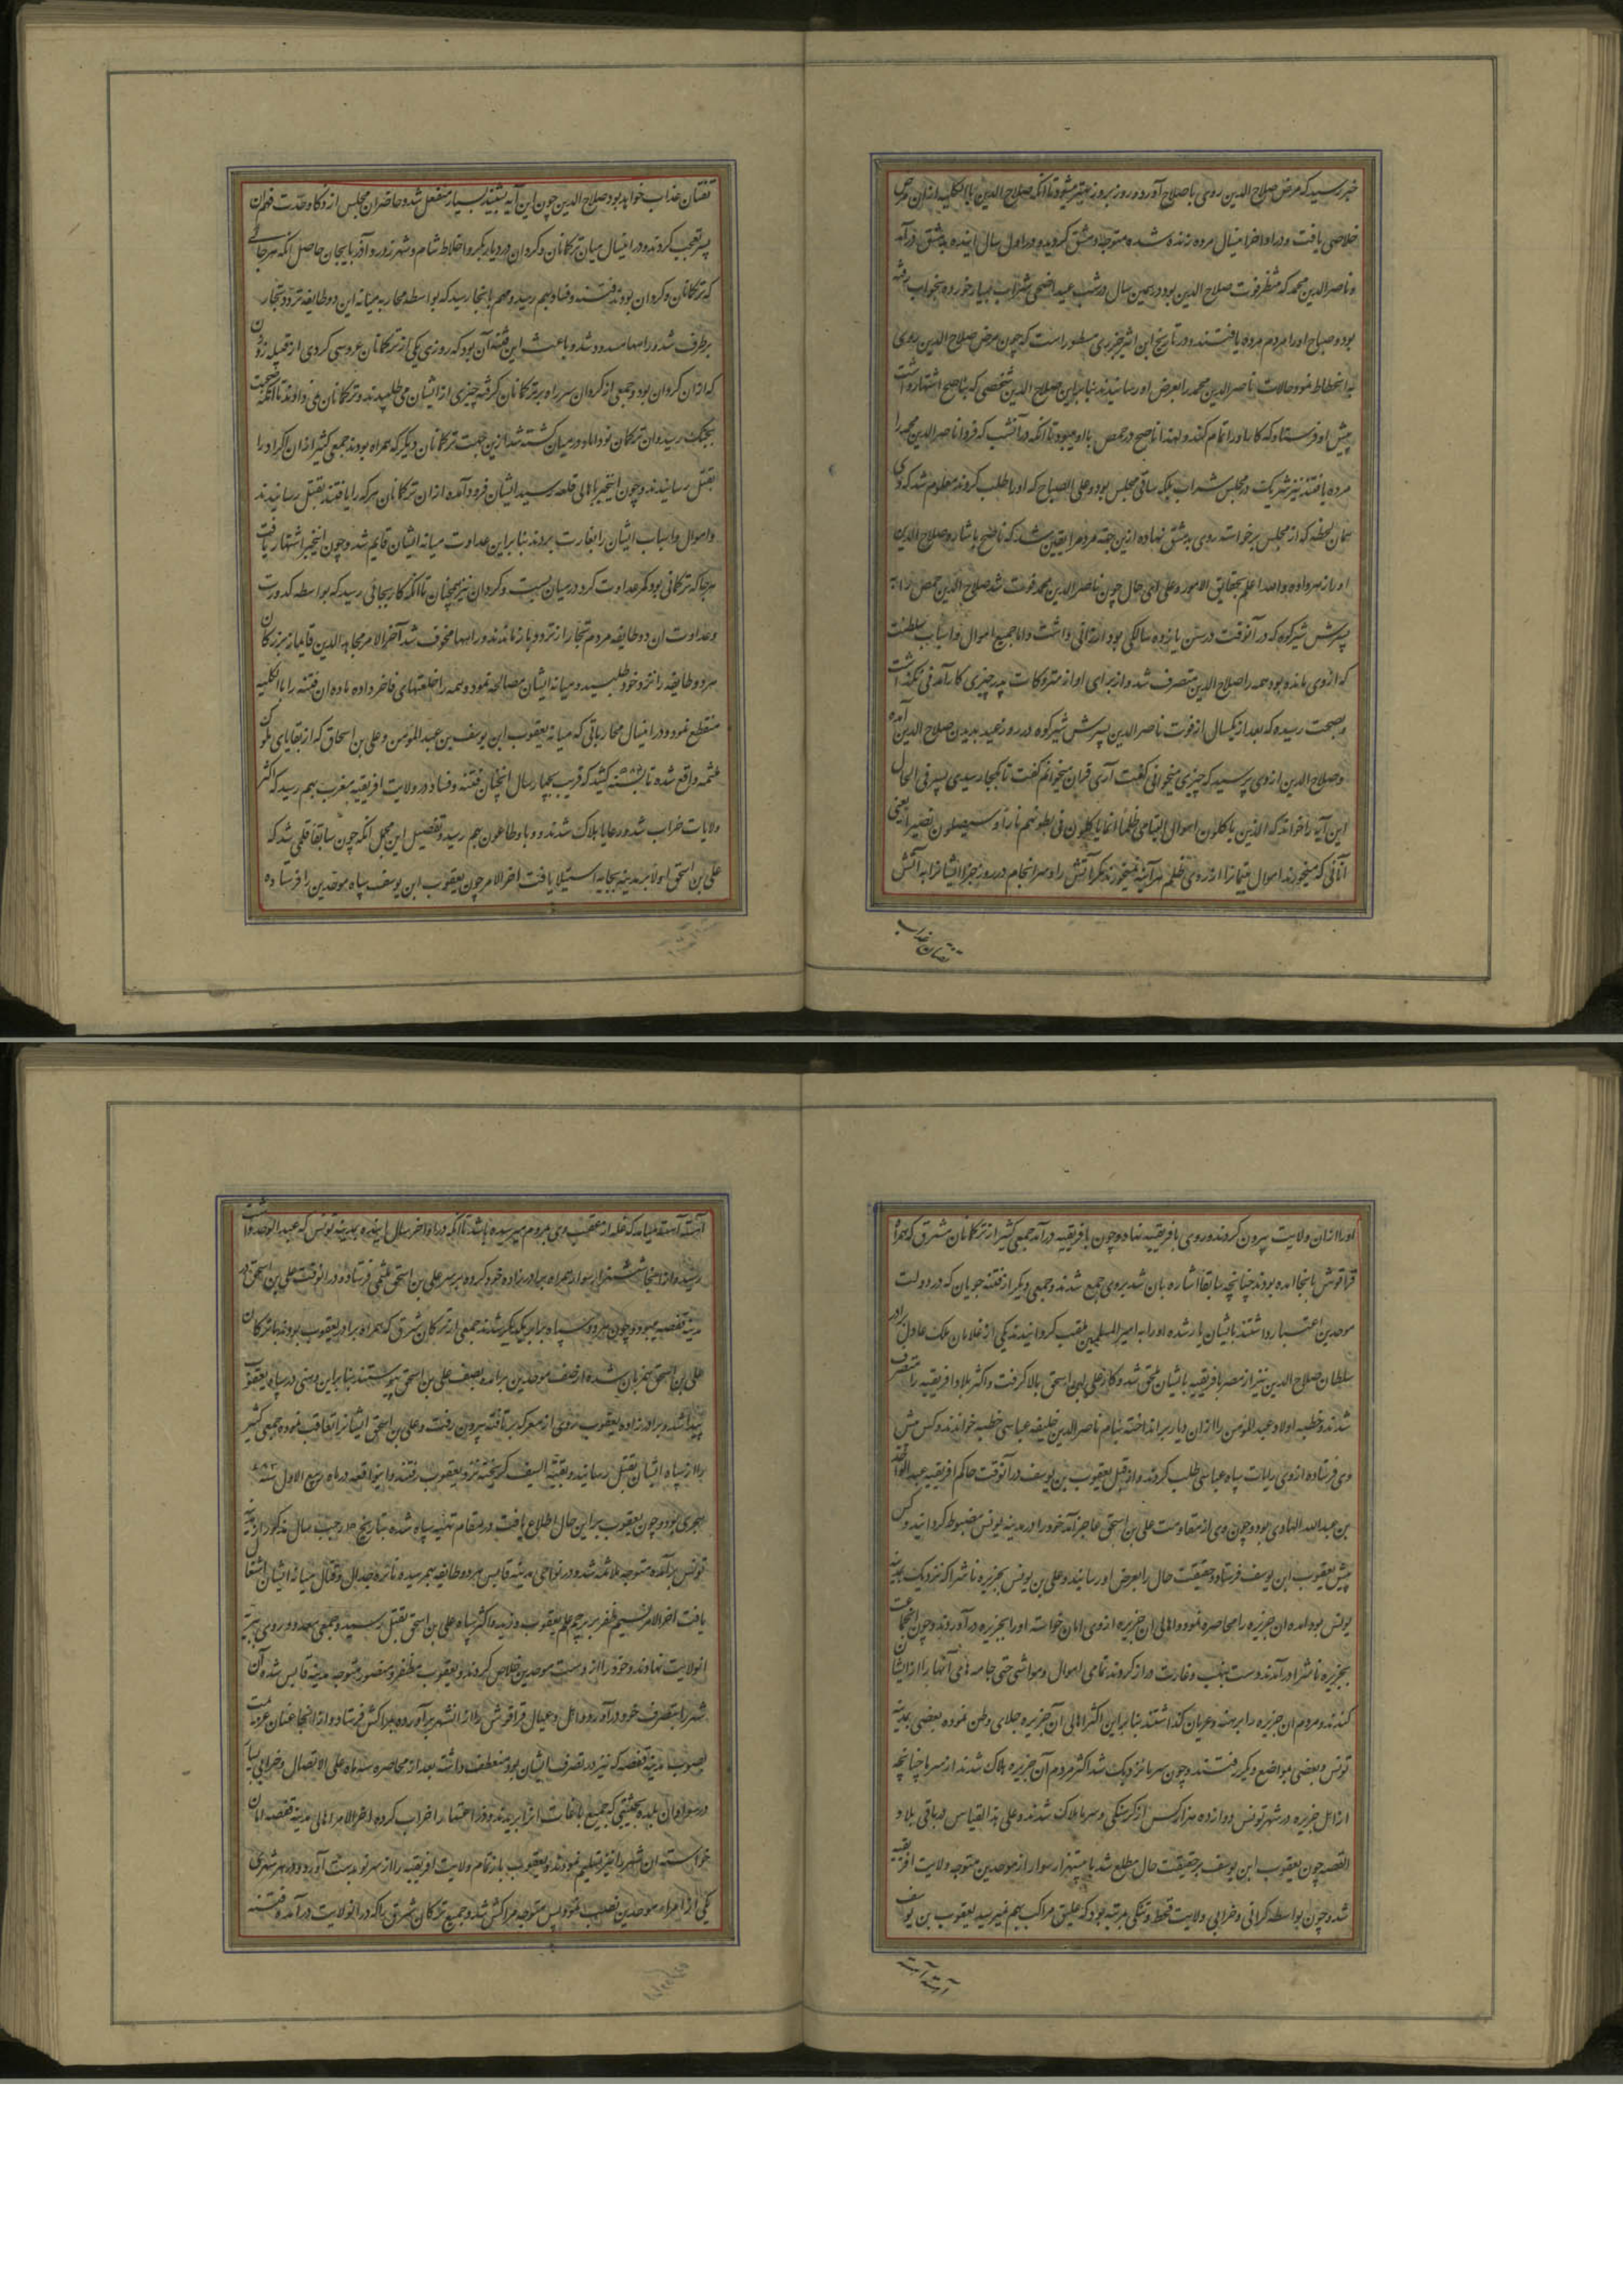 خبر رسید که مرض صلاح الدین روی باصلاح آورده و روز بروز بهتر میشود تا آنکه صلاح الدین بالکلیه ازان مرض
خلاصی یافت و در اواخر اینسال مرده زنده شده متوجه دمشق گردید و در اول سال اینده بدمشق درآمد
و ناصر الدین محمد که منتظر فوت صلاح الدین بود در همین سال در شب عید اضحی شراب بسیار خورده بخواب رفته
بود و صباح اورا مردم مرده یافتند و در تاریخ ابن اثیر جزری مسطور است که چون مرض صلاح الدین روی
به انحطاط نمود حالات ناصر الدین محمد را بعرض او رسانیدند بنابراین صلاح الدین شخصی که بناصح اشتهار داشت
پیش او فرستاد که کار اورا تمام کند و لهذا ناصح در حمص با او میبود تا آنکه در آنشب که فردا ناصر الدین محمد را
مرده یافتند نیز شریک در مجلس شراب بلکه ساقی مجلس بود و علی الصباح که اورا طلب کردند معلوم شد که وی
همان لحظه که از مجلس برخواسته روی بدمشق نهاده ازین جهته مردم را یقین شد که ناصح باشاره صلاح الدین
اورا زهر داده و الله اعلم بحقایق الامور و علی ای حال چون ناصر الدین محمد فوت شد صلاح الدین حمص را به
پسرش شیرکوه که در آنوقت در سن یازده سالگی بود ارزانی داشت و اما جمیع اموال و اسباب سلطنت
که ازوی مانده بود همه را صلاح الدین متصرف شد و از برای او از متروکات پدر چیزی کارآمدنی نگذاشت
و بصحت رسیده که بعد از یکسال از فوت ناصر الدین پسرش شیرکوه در روز عید بدیدن صلاح الدین آمده
و صلاح الدین ازوی پرسید که چیزی میخوانی گفت آری قران میخوانم گفت تا کجا رسیدی پسر فی الحال
این آیه را خواند که الذین یاکلون اموال الیتامی ظلما انما یاکلون فی بطونهم نارا و سیصلون نصیرا یعنی
آنانی که میخورند اموال یتیمانرا از روی ظلم هر آینه نمیخورند مگر آتش را و سرانجام در روز جزا ایشانرا به آتش
نقتان عذاب
نقتان عذاب خواهد بود صلاح الدین چون این آیه بشنید بسیار منفعل شد و حاضران مجلس از ذکا و حدت فهم آن
پسر تعجب کردند و در اینسال میان ترکانان و کردان در دیار بکر و اخلاط و شام و شهرزور و آذربایجان حاصل آنکه هر جائی
که ترکانان و کردان بودند فتنه و فساد بهم رسید و مهم باینجا رسید که بواسطه محاربه میانه این دو طایفه تردد تجار
برطرف شد و راهها مسدود شد و باعث این فتنه آن بود که روزی یکی از ترکانان عروسی کردی از قبیله زوزن
که ازان کردان بود و جمعی از کردان سر راه بر ترکانان گرفته چیزی از ایشان می طلبیدند و ترکانان می ندادند تا آنکه صحبت
بجنگ رسید و ان ترکمان نوداماد در میان کشته شد ازین جهت ترکانان دیگر که همراه بودند جمعی کثیر ازان اکراد را
بقتل رسانیدند و چون اینخبر باهالی قلعه رسید ایشان فرود آمده ازان ترکانان هر که را یافتند بقتل رسانیدند
و اموال و اسباب ایشان را بغارت بردند بنابراین عداوت میانه ایشان قایم شد و چون اینخبر اشتهار یافت
هر جا که ترکانی بود کمر عداوت کرد در میان بست و کردان نیز همچنان تا آنکه کار بجائی رسید که بواسطه کدورت
و عداوت ان دو طایفه مردم تجار از تردد باز ماندند و راهها مخوف شد آخر الامر مجاهد الدین قایماز بزرکان
هر دو طایفه را نزد خود طلبید و میانه ایشان مصالحه نمود و همه را خلعتهای فاخر داده ماده ان فتنه را بالکلیه
منقطع نمود و در اینسال محارباتی که میانه یعقوب ابن یوسف بن عبد المومن و علی بن اسحاق که از بقایای ملوک
ملثمه واقع شده تا کشید که قریب چهار سال انچنان فتنه و فساد در ولایت افریقیه مغرب بهم رسید که اکثر
ولایات خراب شد و رعایا هلاک شدند و وبا و طاعون بهم رسید و تفصیل این مجمل آنکه چون سابقا قلمی شد که
علی بن اسحق اولا بر مدینه بجایه استیلا یافت اخر الامر چون یعقوب ابن یوسف سپاه موحدین را فرستاده
اورا ازان ولایت بیرون کردند و روی بافریقیه نهاد و چون بافریقیه درآمد جمعی کثیر از ترکانان مشرق که همراه
قراقوش بانجا امده بودند چنانچه سابقا اشاره بان شد بروی جمع شدند و جمعی دیگر از فتنه جویان که در دولت
موحدین اعتبار داشتند بایشان یار شده اورا به امیر المسلمین ملقب کردانیدند یکی از غلامان ملک عادل برادر
سلطان صلاح الدین نیز از مصر بافریقیه بایشان ملحق شد و کار علی بن اسحق بالا گرفت و اکثر بلاد افریقیه را متصرف
شدند و خطبه اولاد عبد المومن را ازان دیار برانداخته بنام ناصر الدین خلیفه عباسی خطبه خواندند و کس پیش
وی فرستاده ازوی رایات سیاه عباسی طلب کردند و از قبل یعقوب بن یوسف در آنوقت حاکم افریقیه عبد الواحد
بن عبد الله الهادی بود و چون وی از مقاومت علی بن اسحق عاجز آمد خود را در مدینه تونس مضبوط کردانید و کس
پیش یعقوب ابن یوسف فرستاد و حقیقت حال را بعرض او رسانید و علی بن یونس بجزیره ناشر که نزدیک مدینه
یونس بود امده ان جزیره را محاصره نمود و اهالی ان جزیره ازوی امان خواسته اورا بجزیره درآوردند و چون انجماعت
بجزیره ناشر درآمدند دست بنهب و غارت دراز کردند تمامی اموال و مواشی حتی جامه های آنها را از ایشان
کندند و مردم ان جزیره را برهنه و عریان گذاشتند بنابراین اکثر اهالی آن جزیره جلای وطن نموده بعضی بمدینه
تونس و بعضی بمواضع دیگر رفتند و چون سرما نزدیک شد اکثر مردم آن جزیره هلاک شدند از سرما چنانچه
از اهل جزیره در شهر تونس دوازده هزار کس از گرسنگی و سرما هلاک شدند و علی هذا القیاس در باقی بلاد
القصه چون یعقوب ابن یوسف بر حقیقت حال مطلع شد با بیست هزار سوار از موحدین متوجه ولایت افریقیه
شد و چون بواسطه گرانی و خرابی ولایت قحط و تنگی بمرتبه بود که علیق مراکب بهم نمیرسید یعقوب بن یوسف
آهسته آهسته
آهسته آهسته میامد که غله از عقب وی بمردم میرسیده باشد تا آنکه در اواخر سال اینده بمدینه تونس که عبد الواحد داشت
رسید و از اینجا شش هزار سوار همراه برادر زاده خود کرده بر سر علی بن اسحق ملثمی فرستاد و در انوقت علی بن اسحق در
مدینه قفصه میبود و چون هر دو سپاه برابر یکدیگر شدند جمعی از ترکان شرق که همراه برادر یعقوب بودند با ترکان
علی بن اسحق همزبان شده از صف موحدین برآمده بصف علی بن اسحق پیوستند بنابراین وهنی در سپاه یعقوب
پیدا شد و برادر زاده یعقوب روی از معرکه برتافته بیرون رفت و علی بن اسحق ایشانرا تعاقب نموده جمعی کثیر
را از سپاه ایشان بقتل رسانید و بقیة السیف گریخته نزد یعقوب رفتند و این واقعه در ماه ربیع الاول سنه ۵۸۳
هجری بود و چون یعقوب بر این حال اطلاع یافت در مقام تهیه سپاه شده بتاریخ ماه رجب سال مذکور از مدینه
تونس برآمده متوجه ملاثمه شد و در نواحی مدینه قابس هر دو طایفه بهم رسیده نایره جدال و قتال میانه ایشان اشتعال
یافت اخر الامر نسیم ظفر بر پرچم علم یعقوب وزید و اکثر سپاه علی بن اسحق بقتل رسید و جمعی معدود روی ببریه
انولایت نهادند و خود را از دست موحدین خلاص کردند و یعقوب مظفر و منصور متوجه مدینه قابس شده آن
شهر را بتصرف خود درآورد و اهل و عیال قراقوش را ازانشهر برآورده بمراکش فرستاد و از اینجا عنان عزیمت
بصوب مدینه قفصه که نیز در تصرف ایشان بود منعطف داشته بعد از محاصره سه ماه علی الاتصال و خرابی بسیار
در سواد ان بلده بحیثیتی که جمیع باغات انرا بریدند و زراعتها را خراب کرده اخر الامر اهالی مدینه قفصه امان
خواسته ان شهر را نیز تسلیم نمودند و یعقوب باز تمام ولایت افریقیه را از سر نو بدست آورد و در هر شهری
یکی از امراء موحدین نصب نمود پس متوجه مراکش شد و جمیع ترکان شرق را که در انولایت درآمده فتنه